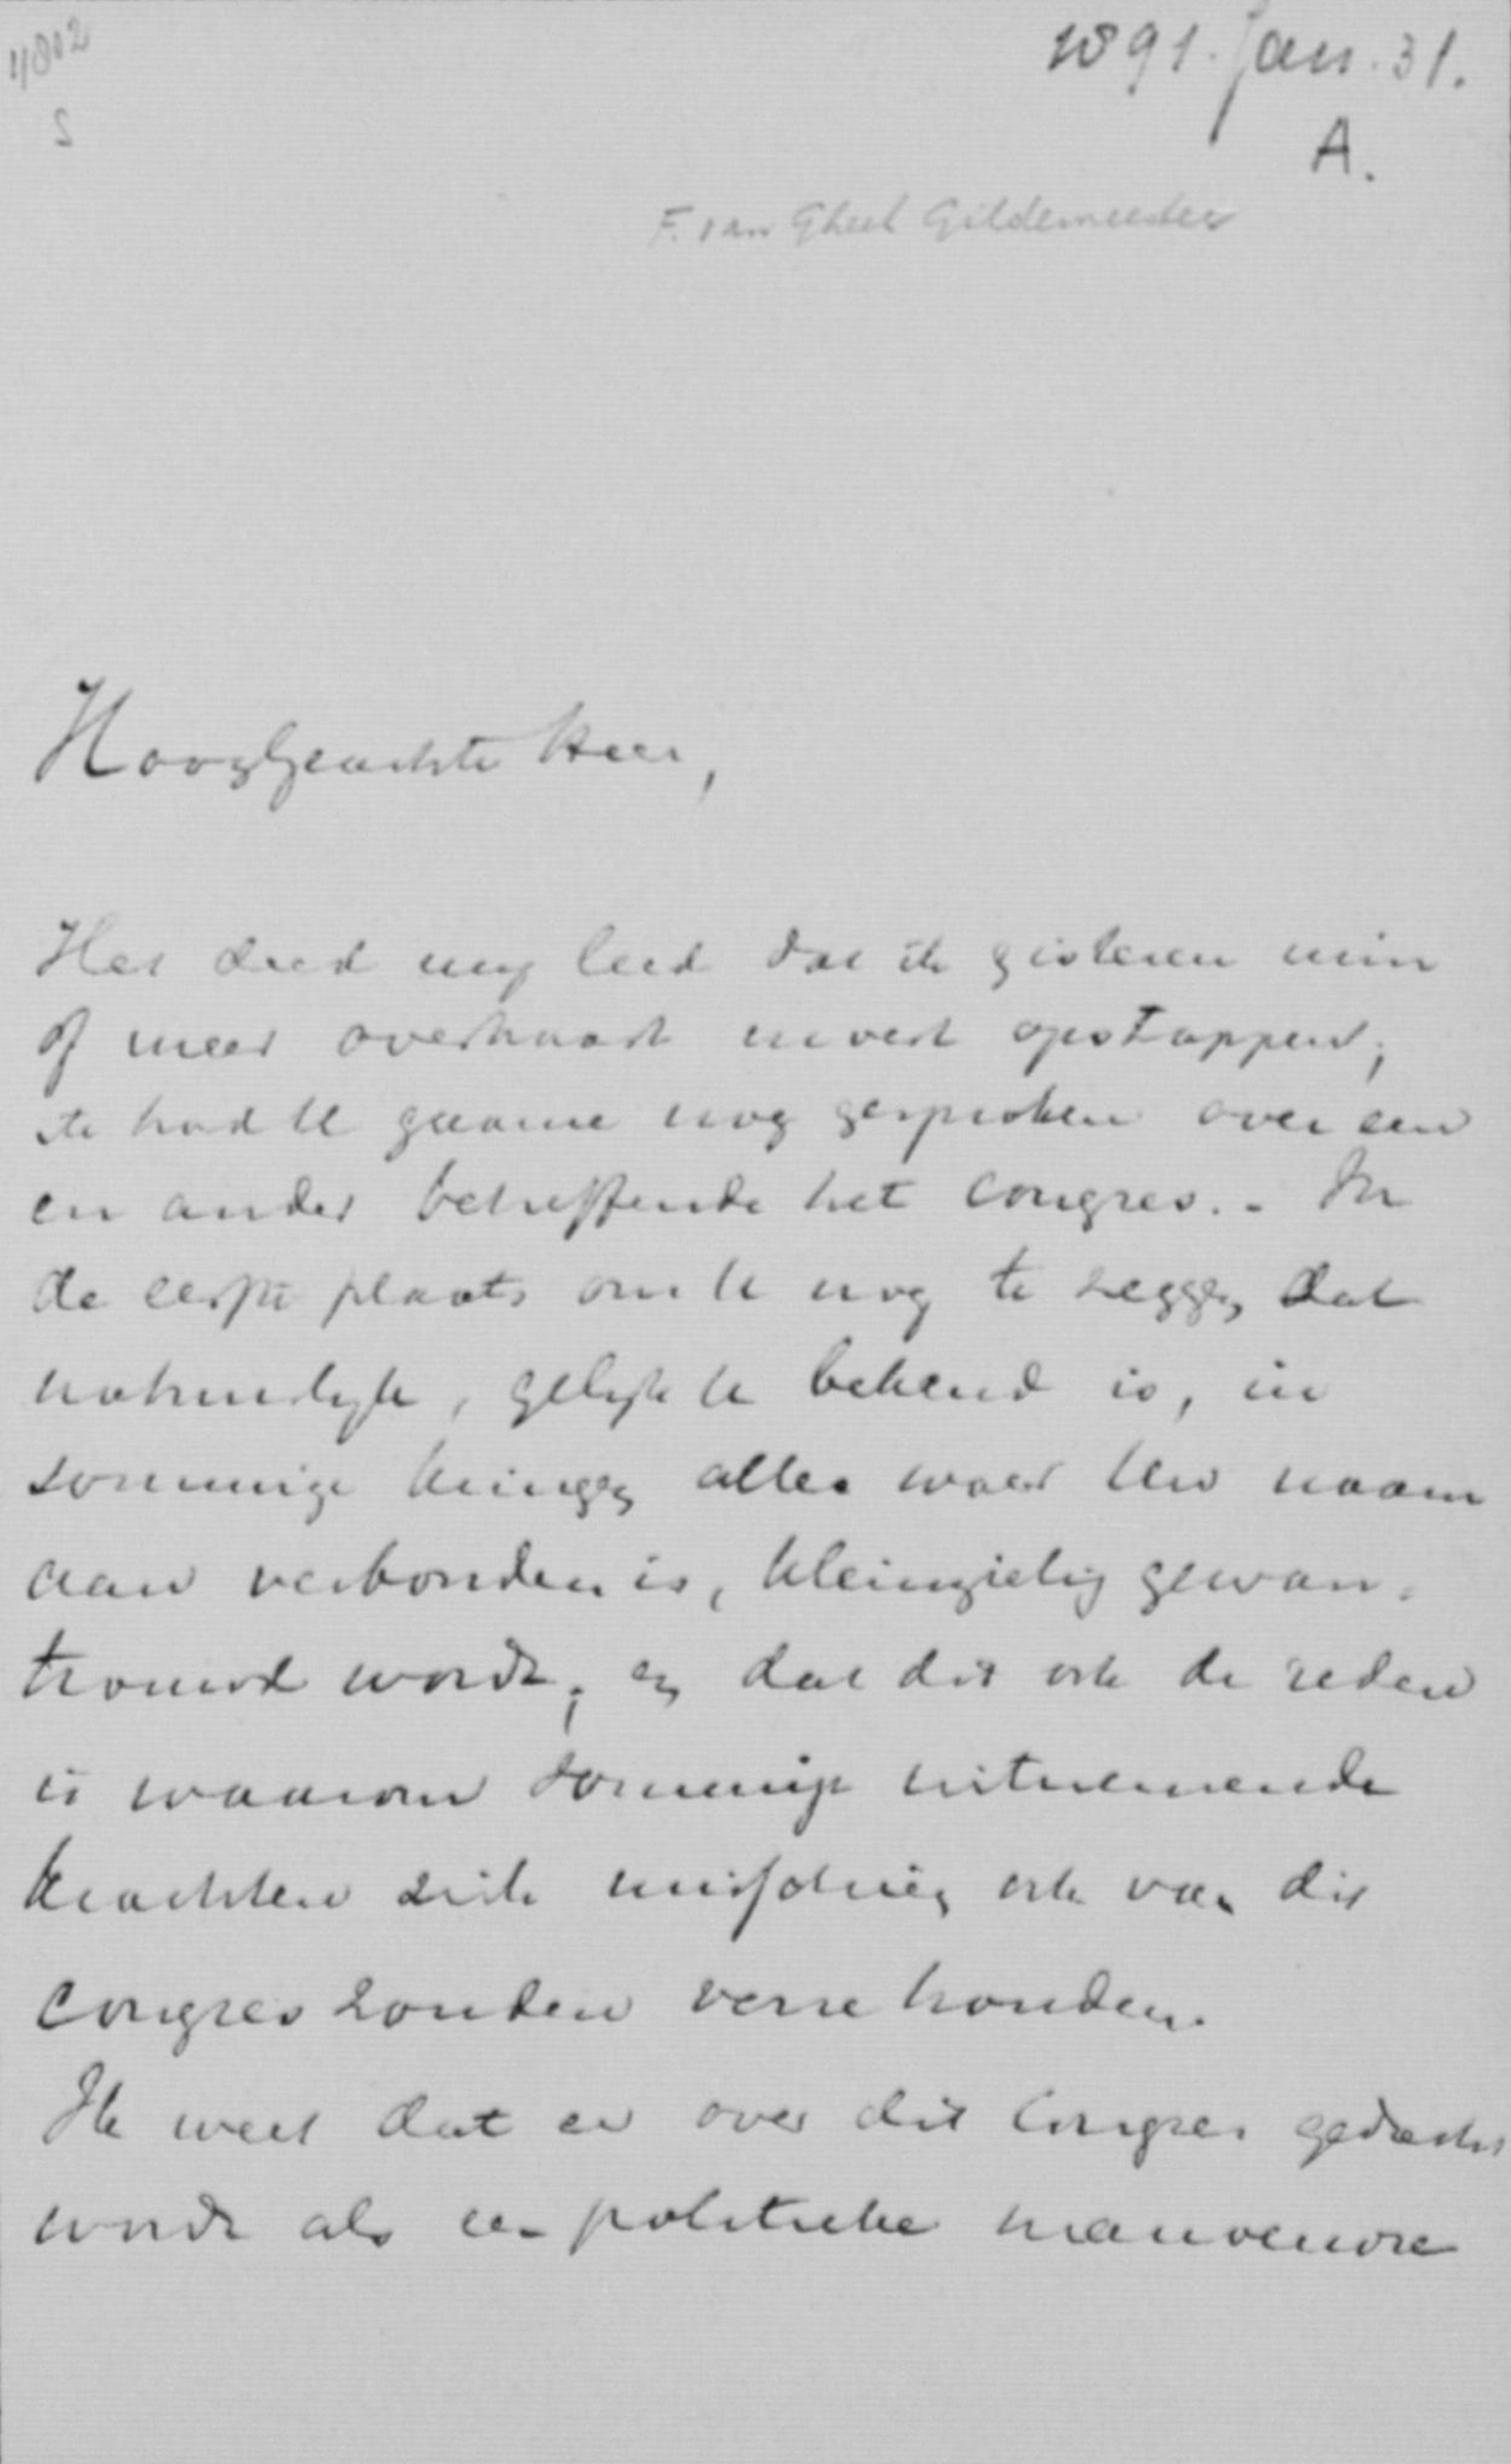 4802
S
1891. Jan. 31.
A.
F. van Gheel Gildemeester
HoogGeachte Heer,
Het deed my leed dat ik gisteren min
of meer overhaast moest opstappen;
ik had U gaarne nog gesproken over een
en ander betreffende het Congres. - In
de eerste plaats om U nog te zeggen dat
natuurlyk, gelyk U bekend is, in
sommige kringen alles waar Uw naam
aan verbonden is, kleinzielig gewan-
trouwd wordt; en dat dit ook de reden
is waarom sommige uitnemende
krachten zich misschien ook van dit
Congres zouden verre houden.
Ik weet dat er over dit Congres gedacht
wordt als een politieke manoeuvre